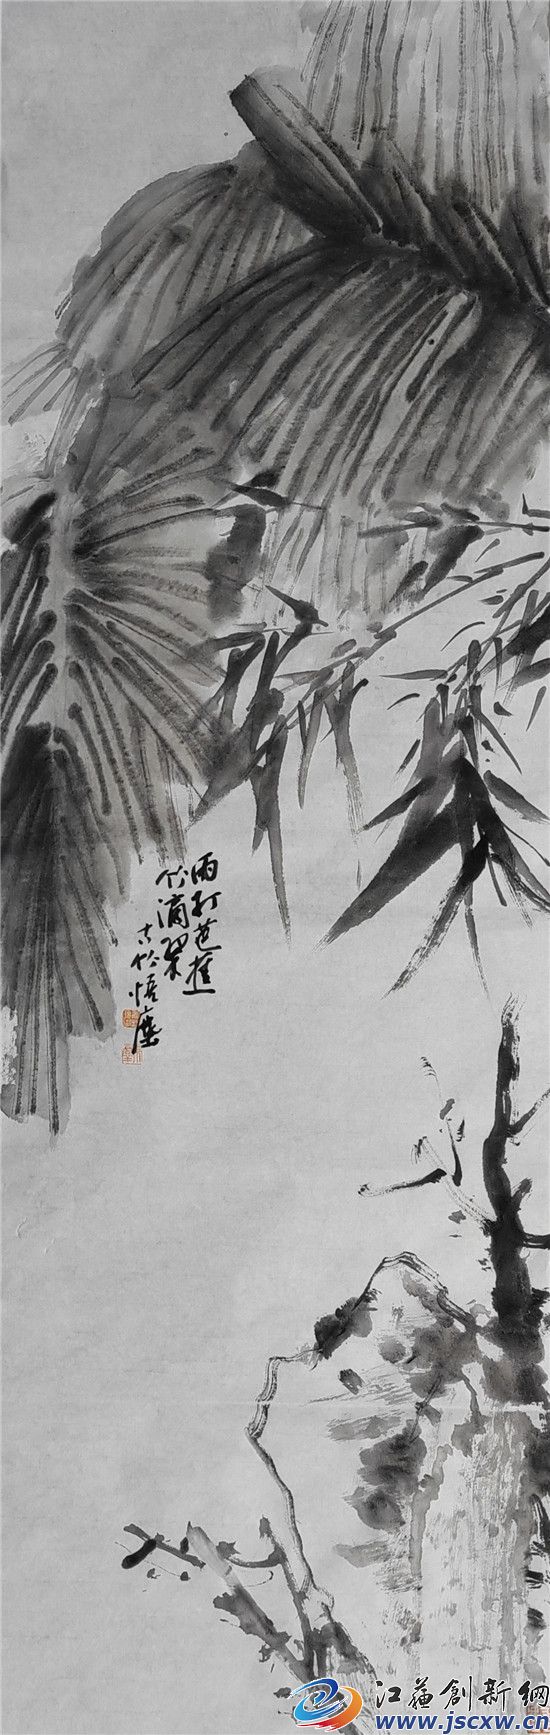 雨打芭蕉
竹滴翠
古竹悟塵
江蘇創新網
www.jscxw.cn